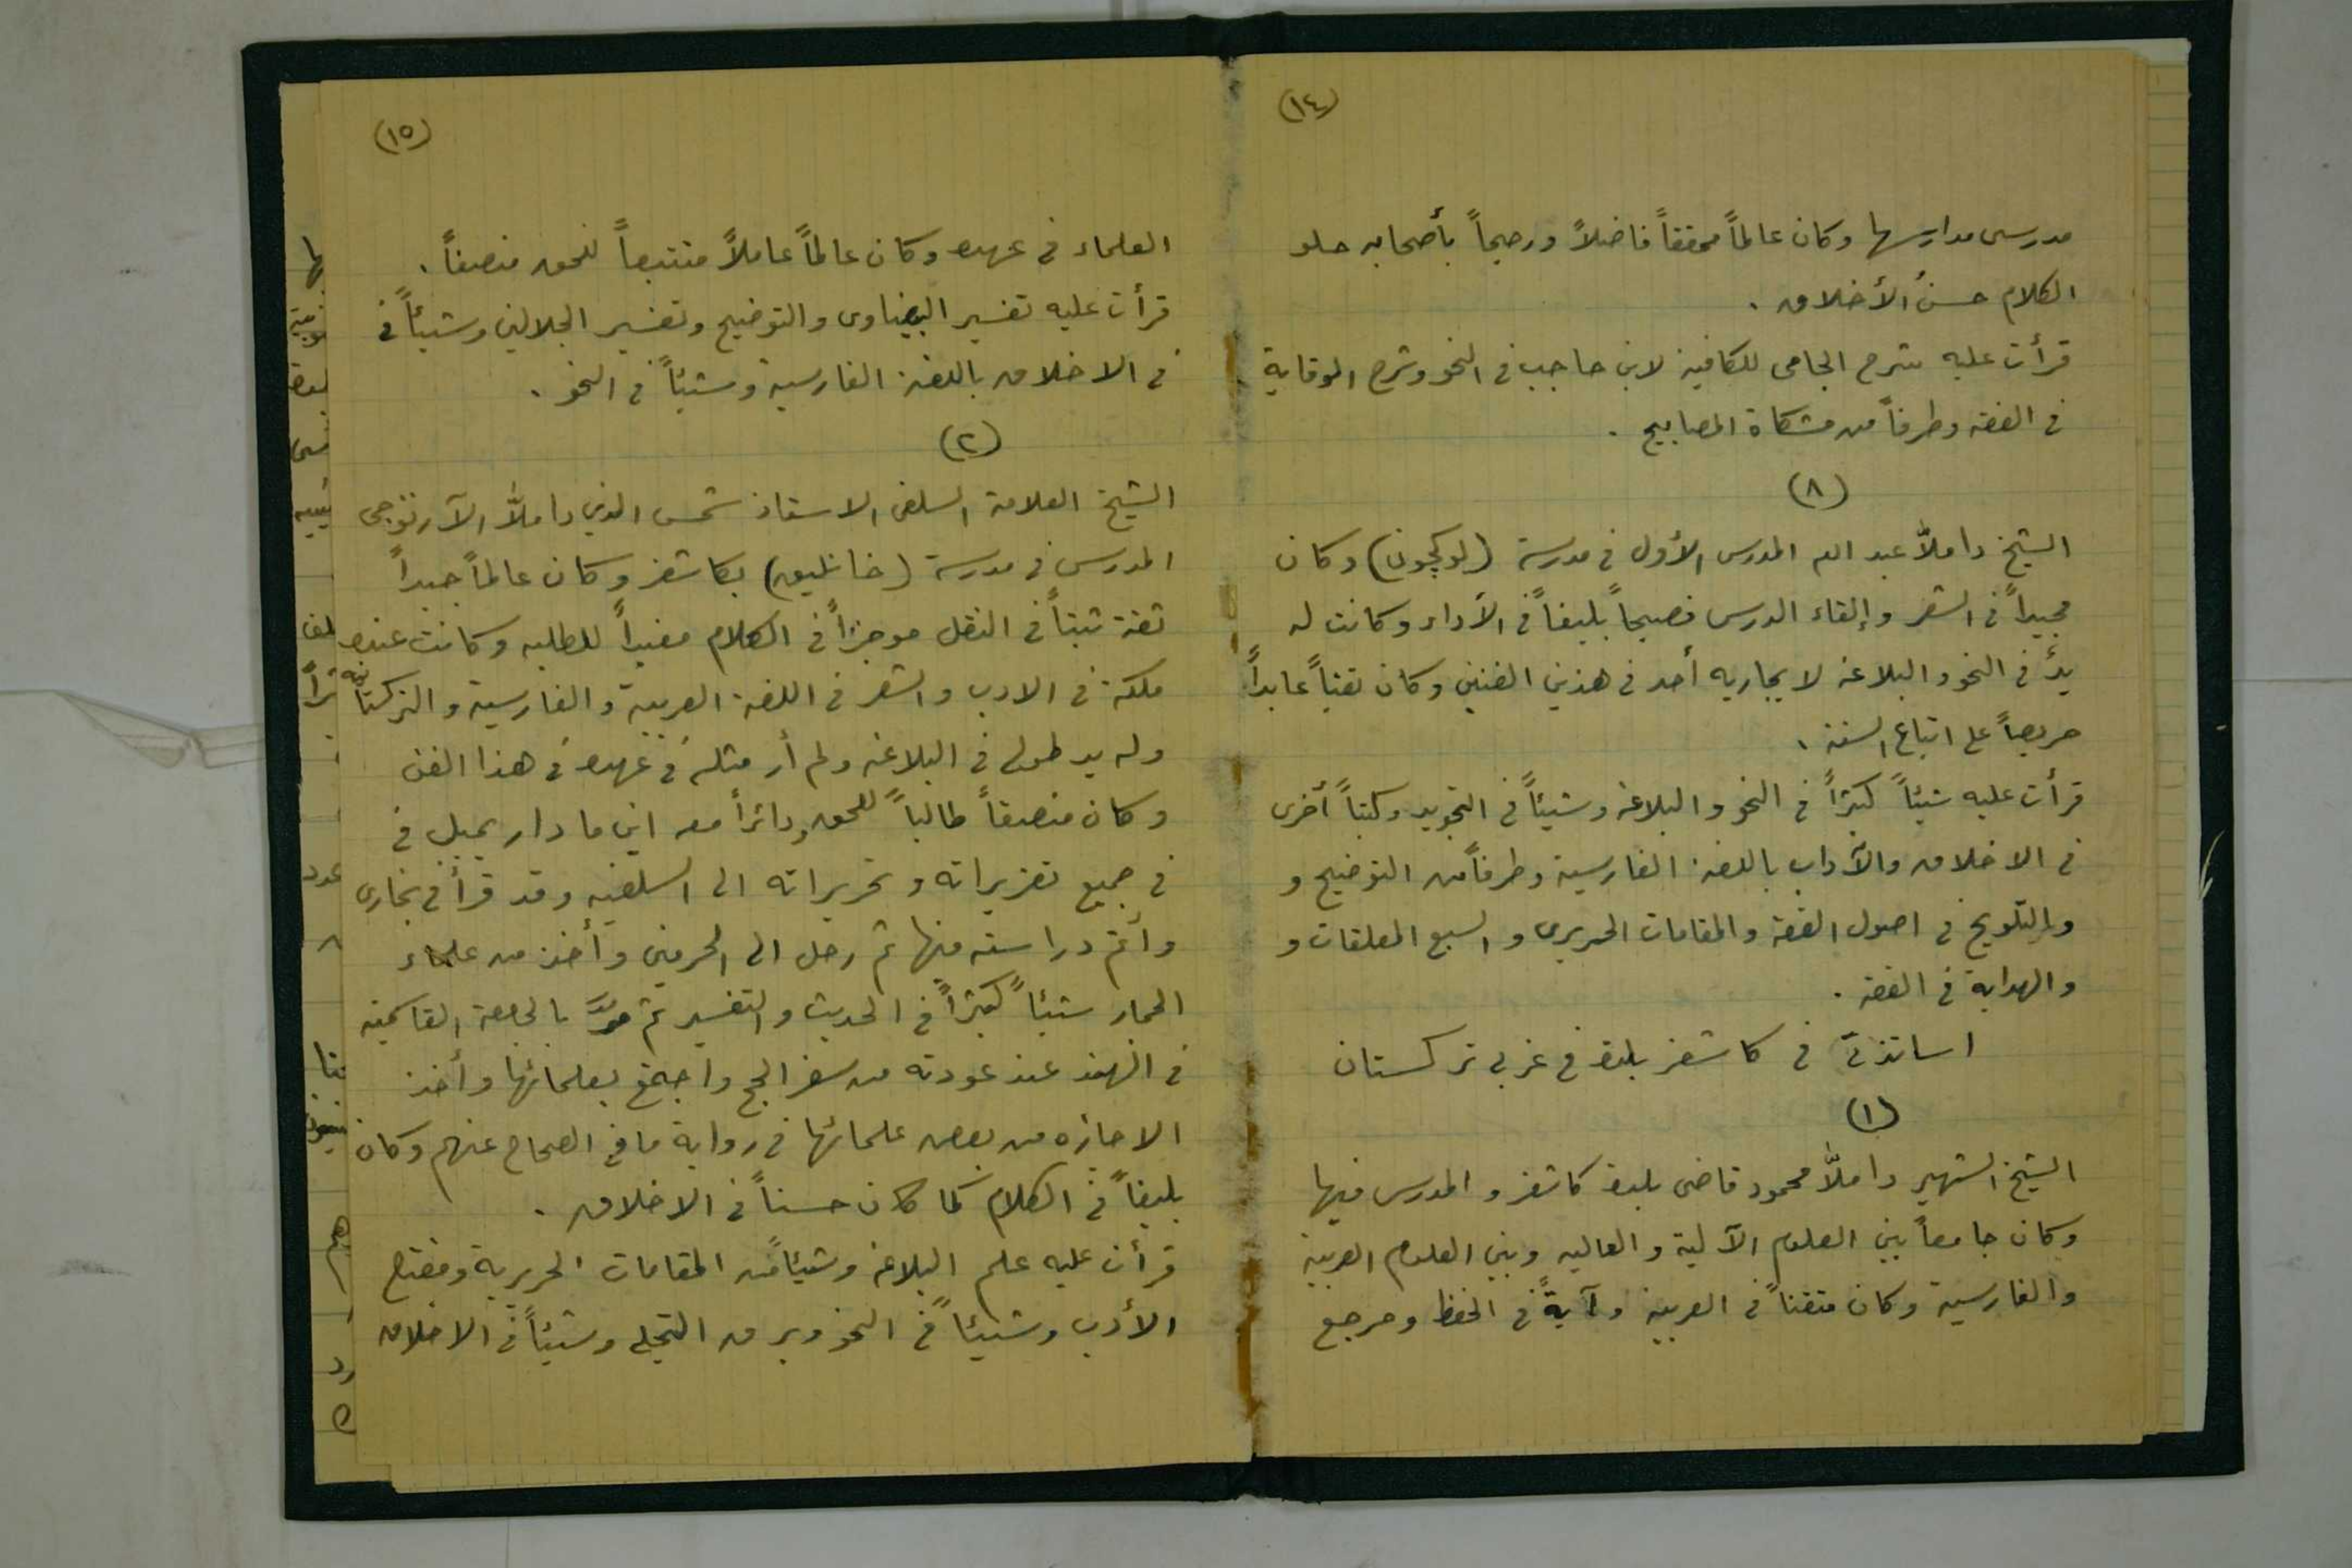 (١٤)
مدرسى مدارسها وكان عالماً محققاً فاضلاً ورحيماً بأصحابه حلو
الكلام حسنُ الأخلاق .
قرأت عليه شرح الجامى للكافية لابن حاجب فى النحو وشرح الوقاية
فى الفقه وطرفاً من مشكاة المصابيح .
(٨)
الشيخ داملاّ عبد الله المدرس الأول فى مدرسة (لوكچون) وكان
مجيداً فى الشعر وإلقاء الدرس فصيحاً بليغاً فى الأداء وكانت له
يدٌ فى النحو والبلاغة لا يجاريه أحد فى هذين الفنين وكان تقياً عابداً
حريصاً على اتباع السنة .
قرأت عليه شيئاً كثيراً فى النحو والبلاغة وشيئاً فى التجويد وكتباً أخرى
فى الاخلاق والآداب باللغة الفارسية وطرفاً من التوضيح و
والتلويح فى اصول الفقه والمقامات الحريرى والسبع المعلقات و
والهداية فى الفقه .
اساتذتى فى كاشغر بلدة فى غربى تركستان
(١)
الشيخ الشهير داملاّ محمود قاضى بلدة كاشغر والمدرس فيها
وكان جامعاً بين العلوم الآلية والعالية وبين العلوم العربية
والفارسية وكان متقناً فى العربية وآيةً فى الحفظ ومرجع
(١٥)
العلماء فى عهده وكان عالماً عاملاً متتبعاً للحق منصفاً .
قرأت عليه تفسير البيضاوى والتوضيح وتفسير الجلالين وشيئاً فى
فى الاخلاق باللغة الفارسية وشيئاً فى النحو .
(٢)
الشيخ العلامة السلفى الاستاذ شمس الدين داملاّ الآرتوجى
المدرس فى مدرسة (خانليق) بكاشغر وكان عالماً جيداً
ثقة ثبتاً فى النقل موجزاً فى الكلام مفيداً للطلبه وكانت عنده
ملكة فى الادب والشعر فى اللغة العربية والفارسية والتركستانية
وله يد طولى فى البلاغة ولم أر مثله فى عهده فى هذا الفن
وكان منصفاً طالباً للحق ودائراً معه اين ما دار يميل فى
فى جميع تقريراته وتحريراته الى السلفية وقد قرأ فى بخارى
وأتم دراسته منها ثم رحل الى الحرمين وأخذ من علماء
الحجاز شيئاً كثيراً فى الحديث والتفسير ثم مرّ بالجامعة القاسمية
فى الهند عند عودته من سفر الحج واجتمع بعلمائها وأخذ
الاجازه من بعض علمائها فى رواية ما فى الصحاح عنهم وكان
بليغاً فى الكلام كما كان حسناً فى الاخلاق .
قرأت عليه علم البلاغة وشيئاً من المقامات الحريرية ومفتاح
الأدب وشيئاً فى النحو وبرق التجلى وشيئاً فى الاخلاق